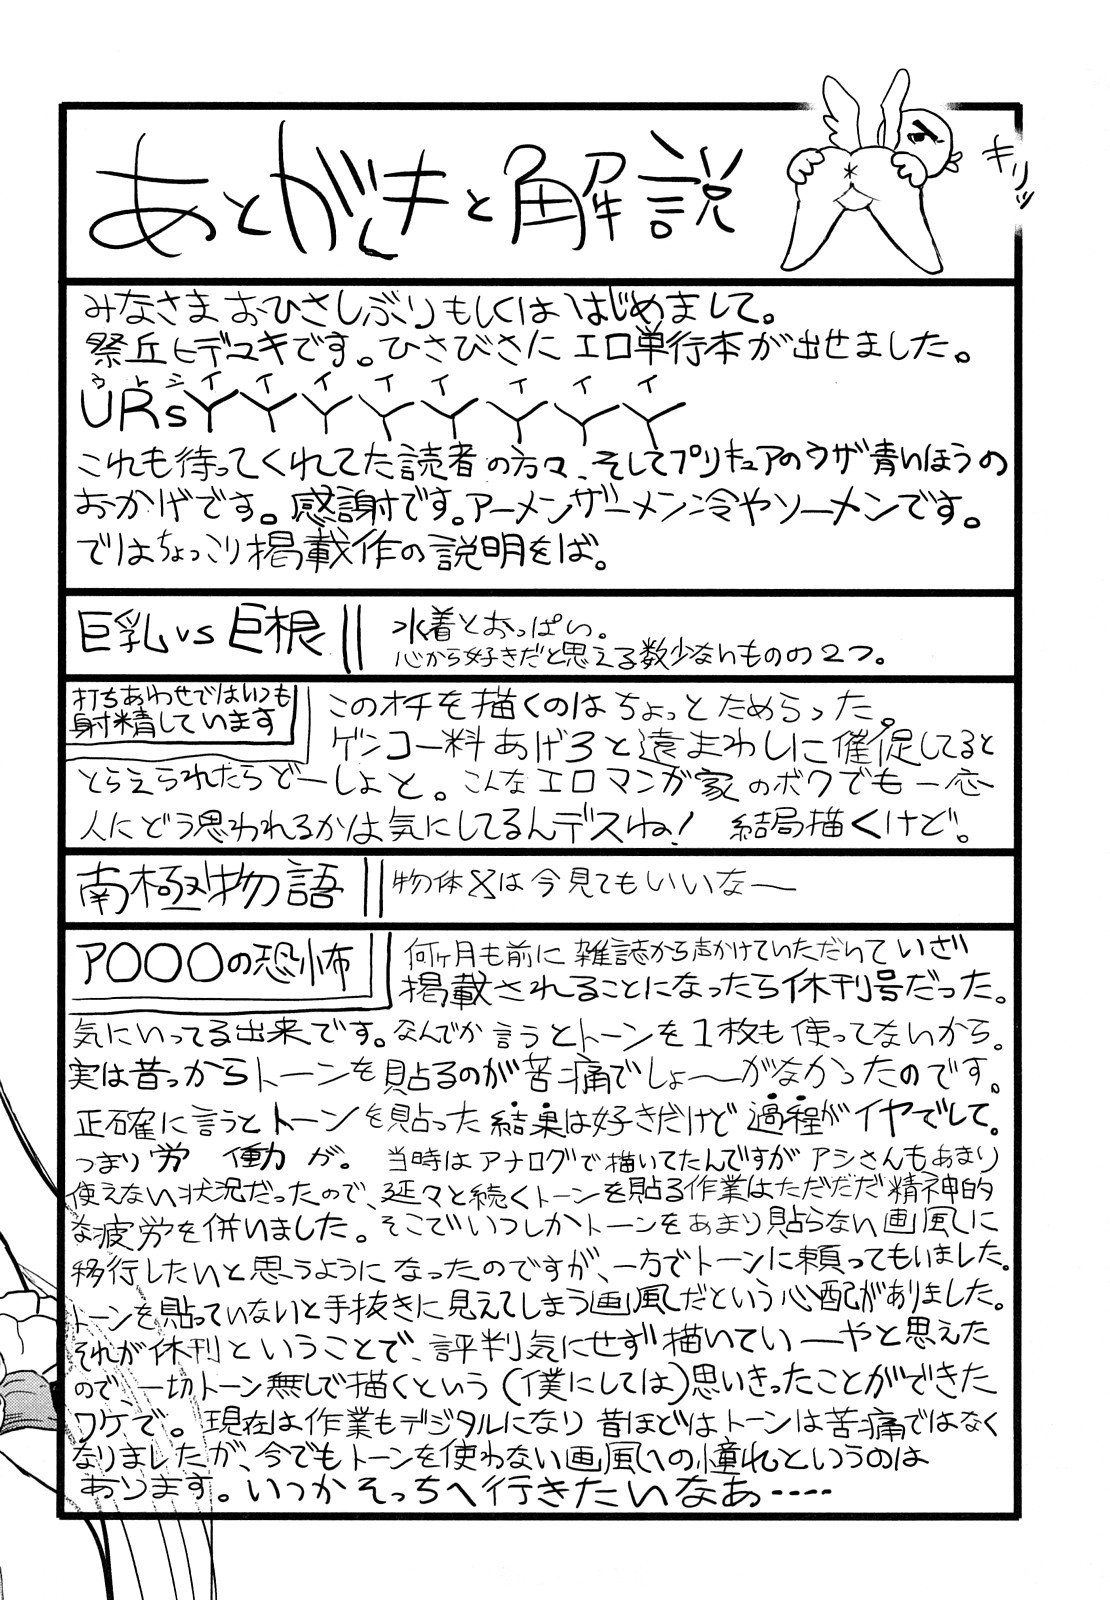 あとがきと解説
キリッ
みなさまおひさしぶりもしくははじめまして。
祭丘ヒデユキです。ひさびさにエロ単行本が出せました。
ウレシイイイイイイイイ
URsYYYYYYYY
これも待ってくれてた読者の方々、そしてプリキュアのウザ青いほうの
おかげです。感謝です。アーメンザーメン冷やソーメンです。
ではちょっこり掲載作の説明をば。
巨乳vs巨根
水着とおっぱい。
心から好きだと思える数少ないものの2つ。
打ちあわせではいつも
射精しています
このオチを描くのはちょっとためらった。
ゲンコー料あげろと遠まわしに催促してると
とらえられたらどーしよと。こんなエロマンガ家のボクでも一応
人にどう思われるかは気にしてるんデスね! 結局描くけど。
南極物語
物体Xは今見てもいいなー
ア〇〇〇の恐怖
何ヶ月も前に雑誌から声かけていただいていざ
掲載されることになったら休刊号だった。
気にいってる出来です。なんでか言うとトーンを1枚も使ってないから。
実は昔っからトーンを貼るのが苦痛でしょーがなかったのです。
正確に言うとトーンを貼った結果は好きだけど過程がイヤでして。
つまり労働が。 当時はアナログで描いてたんですがアシさんもあまり
使えない状況だったので、延々と続くトーンを貼る作業はただだだ精神的
な疲労を併いました。そこでいつしかトーンをあまり貼らない画風に
移行したいと思うようになったのですが、一方でトーンに頼ってもいました。
トーンを貼っていないと手抜きに見えてしまう画風だという心配がありました。
それが休刊ということで、評判気にせず描いていーやと思えた
ので一切トーン無しで描くという(僕にしては)思いきったことができた
ワケで。現在は作業もデジタルになり昔ほどはトーンは苦痛ではなく
なりましたが、今でもトーンを使わない画風への憧れというのは
あります。いつかそっちへ行きたいなあ・・・・・